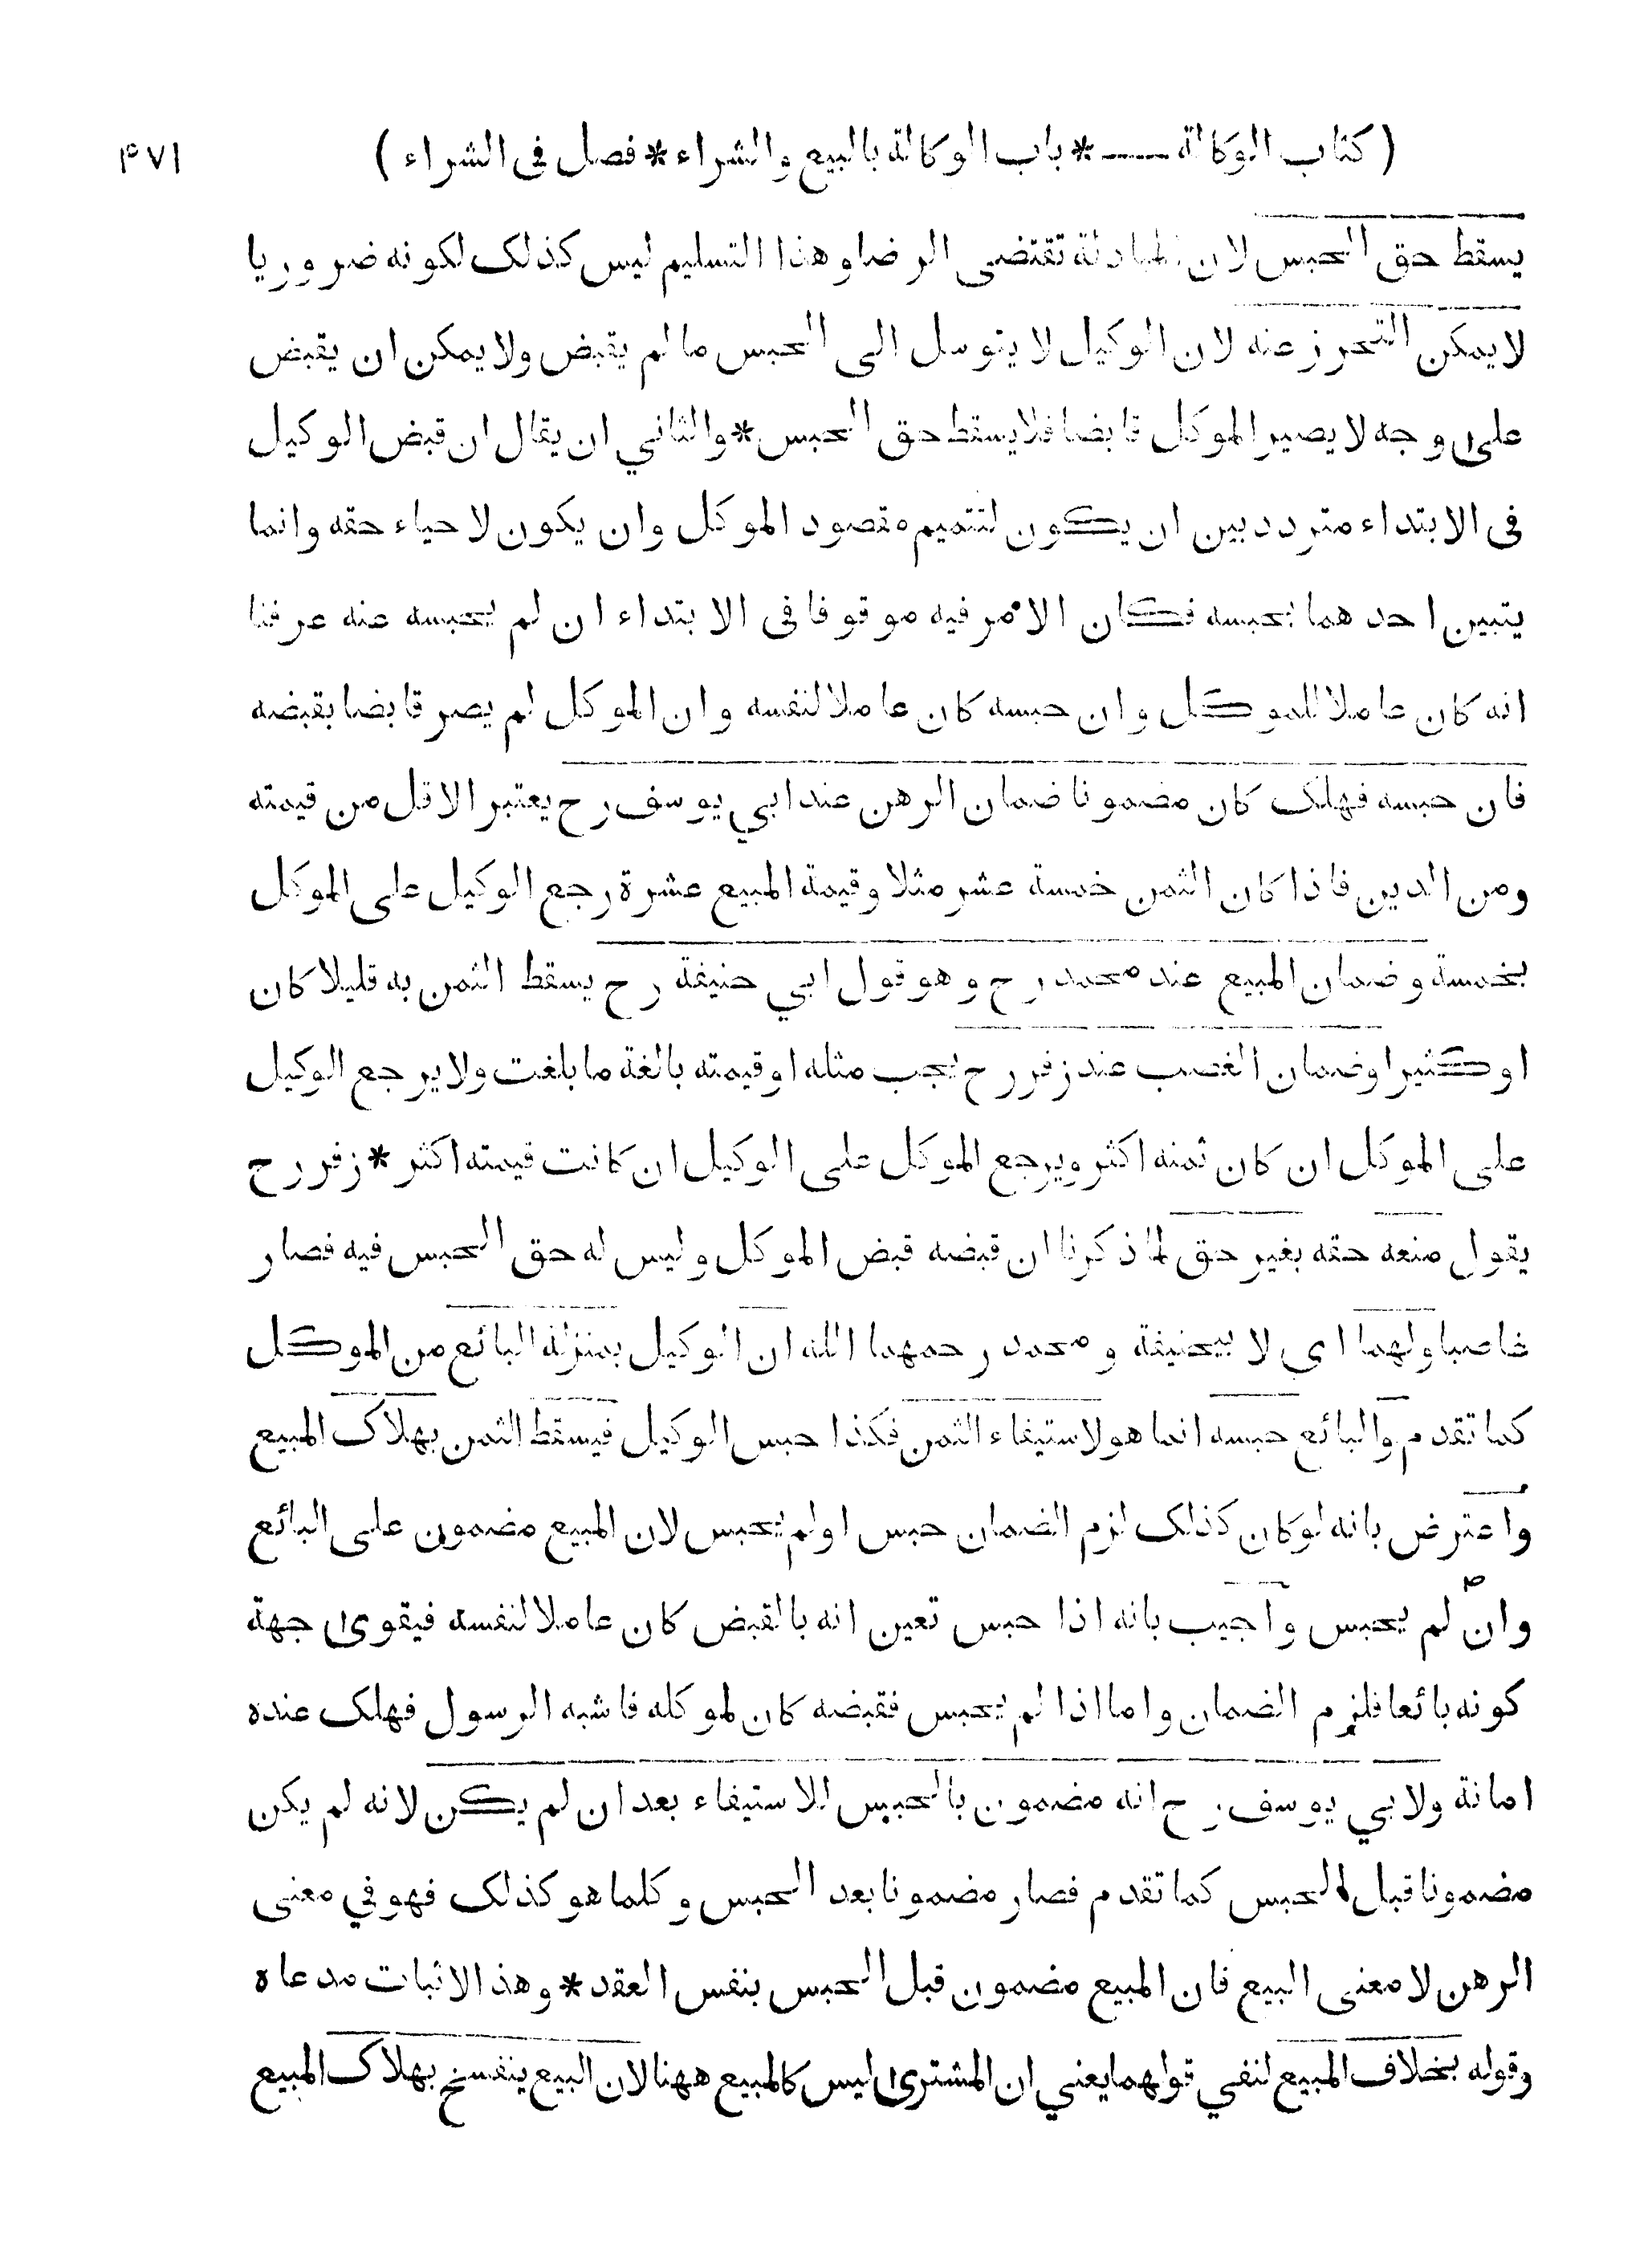 ( كتاب الوكالة —— * باب الوكالة بالبيع والشراء * فصل فى الشراء ) ۴۷۱
يسقط حق الحبس لان المبادلة تقتضى الرضا وهذا التسليم ليس كذلك لكونه ضروريا
لا يمكن التحرز عنه لان الوكيل لا يتوسل الى الحبس ما لم يقبض ولا يمكن ان يقبض
على وجه لا يصير الموكل قابضا فلا يسقط حق الحبس * والثاني ان يقال ان قبض الوكيل
فى الابتداء متردد بين ان يكون لتتميم مقصود الموكل وان يكون لاحياء حقه وانما
يتبين احدهما بحبسه فكان الامر فيه موقوفا فى الابتداء ان لم يحبسه عنه عرفنا
انه كان عاملا للموكل وان حبسه كان عاملا لنفسه وان الموكل لم يصر قابضا بقبضه
فان حبسه فهلك كان مضمونا ضمان الرهن عند ابي يوسف رح يعتبر الاقل من قيمته
ومن الدين فاذا كان الثمن خمسة عشر مثلا وقيمة المبيع عشرة رجع الوكيل على الموكل
بخمسة وضمان المبيع عند محمد رح وهو قول ابي حنيفة رح يسقط الثمن به قليلا كان
او كثيرا وضمان الغصب عند زفر رح يجب مثله او قيمته بالغة ما بلغت ولا يرجع الوكيل
على الموكل ان كان ثمنه اكثر ويرجع الموكل على الوكيل ان كانت قيمته اكثر * زفر رح
يقول منعه حقه بغير حق لما ذكرنا ان قبضه قبض الموكل وليس له حق الحبس فيه فصار
غاصبا ولهما اى لا بيحنيفة و محمد رحمهما الله ان الوكيل بمنزلة البائع من الموكل
كما تقدم والبائع حبسه انما هو لاستيفاء الثمن فكذا حبس الوكيل فيسقط الثمن بهلاك المبيع
واعترض بانه لو كان كذلك لزم الضمان حبس او لم يحبس لان المبيع مضمون على البائع
وان لم يحبس واجيب بانه اذا حبس تعين انه بالقبض كان عاملا لنفسه فيقوى جهة
كونه بائعا فلزم الضمان واما اذا لم يحبس فقبضه كان لموكله فاشبه الرسول فهلك عنده
امانة ولابي يوسف رح انه مضمون بالحبس للاستيفاء بعد ان لم يكن لانه لم يكن
مضمونا قبل الحبس كما تقدم فصار مضمونا بعد الحبس وكلما هو كذلك فهو في معنى
الرهن لا معنى البيع فان المبيع مضمون قبل الحبس بنفس العقد * وهذا لاثبات مدعاه
وقوله بخلاف المبيع لنفي قولهما يعني ان المشترى ليس كالمبيع ههنا لان البيع ينفسخ بهلاك المبيع